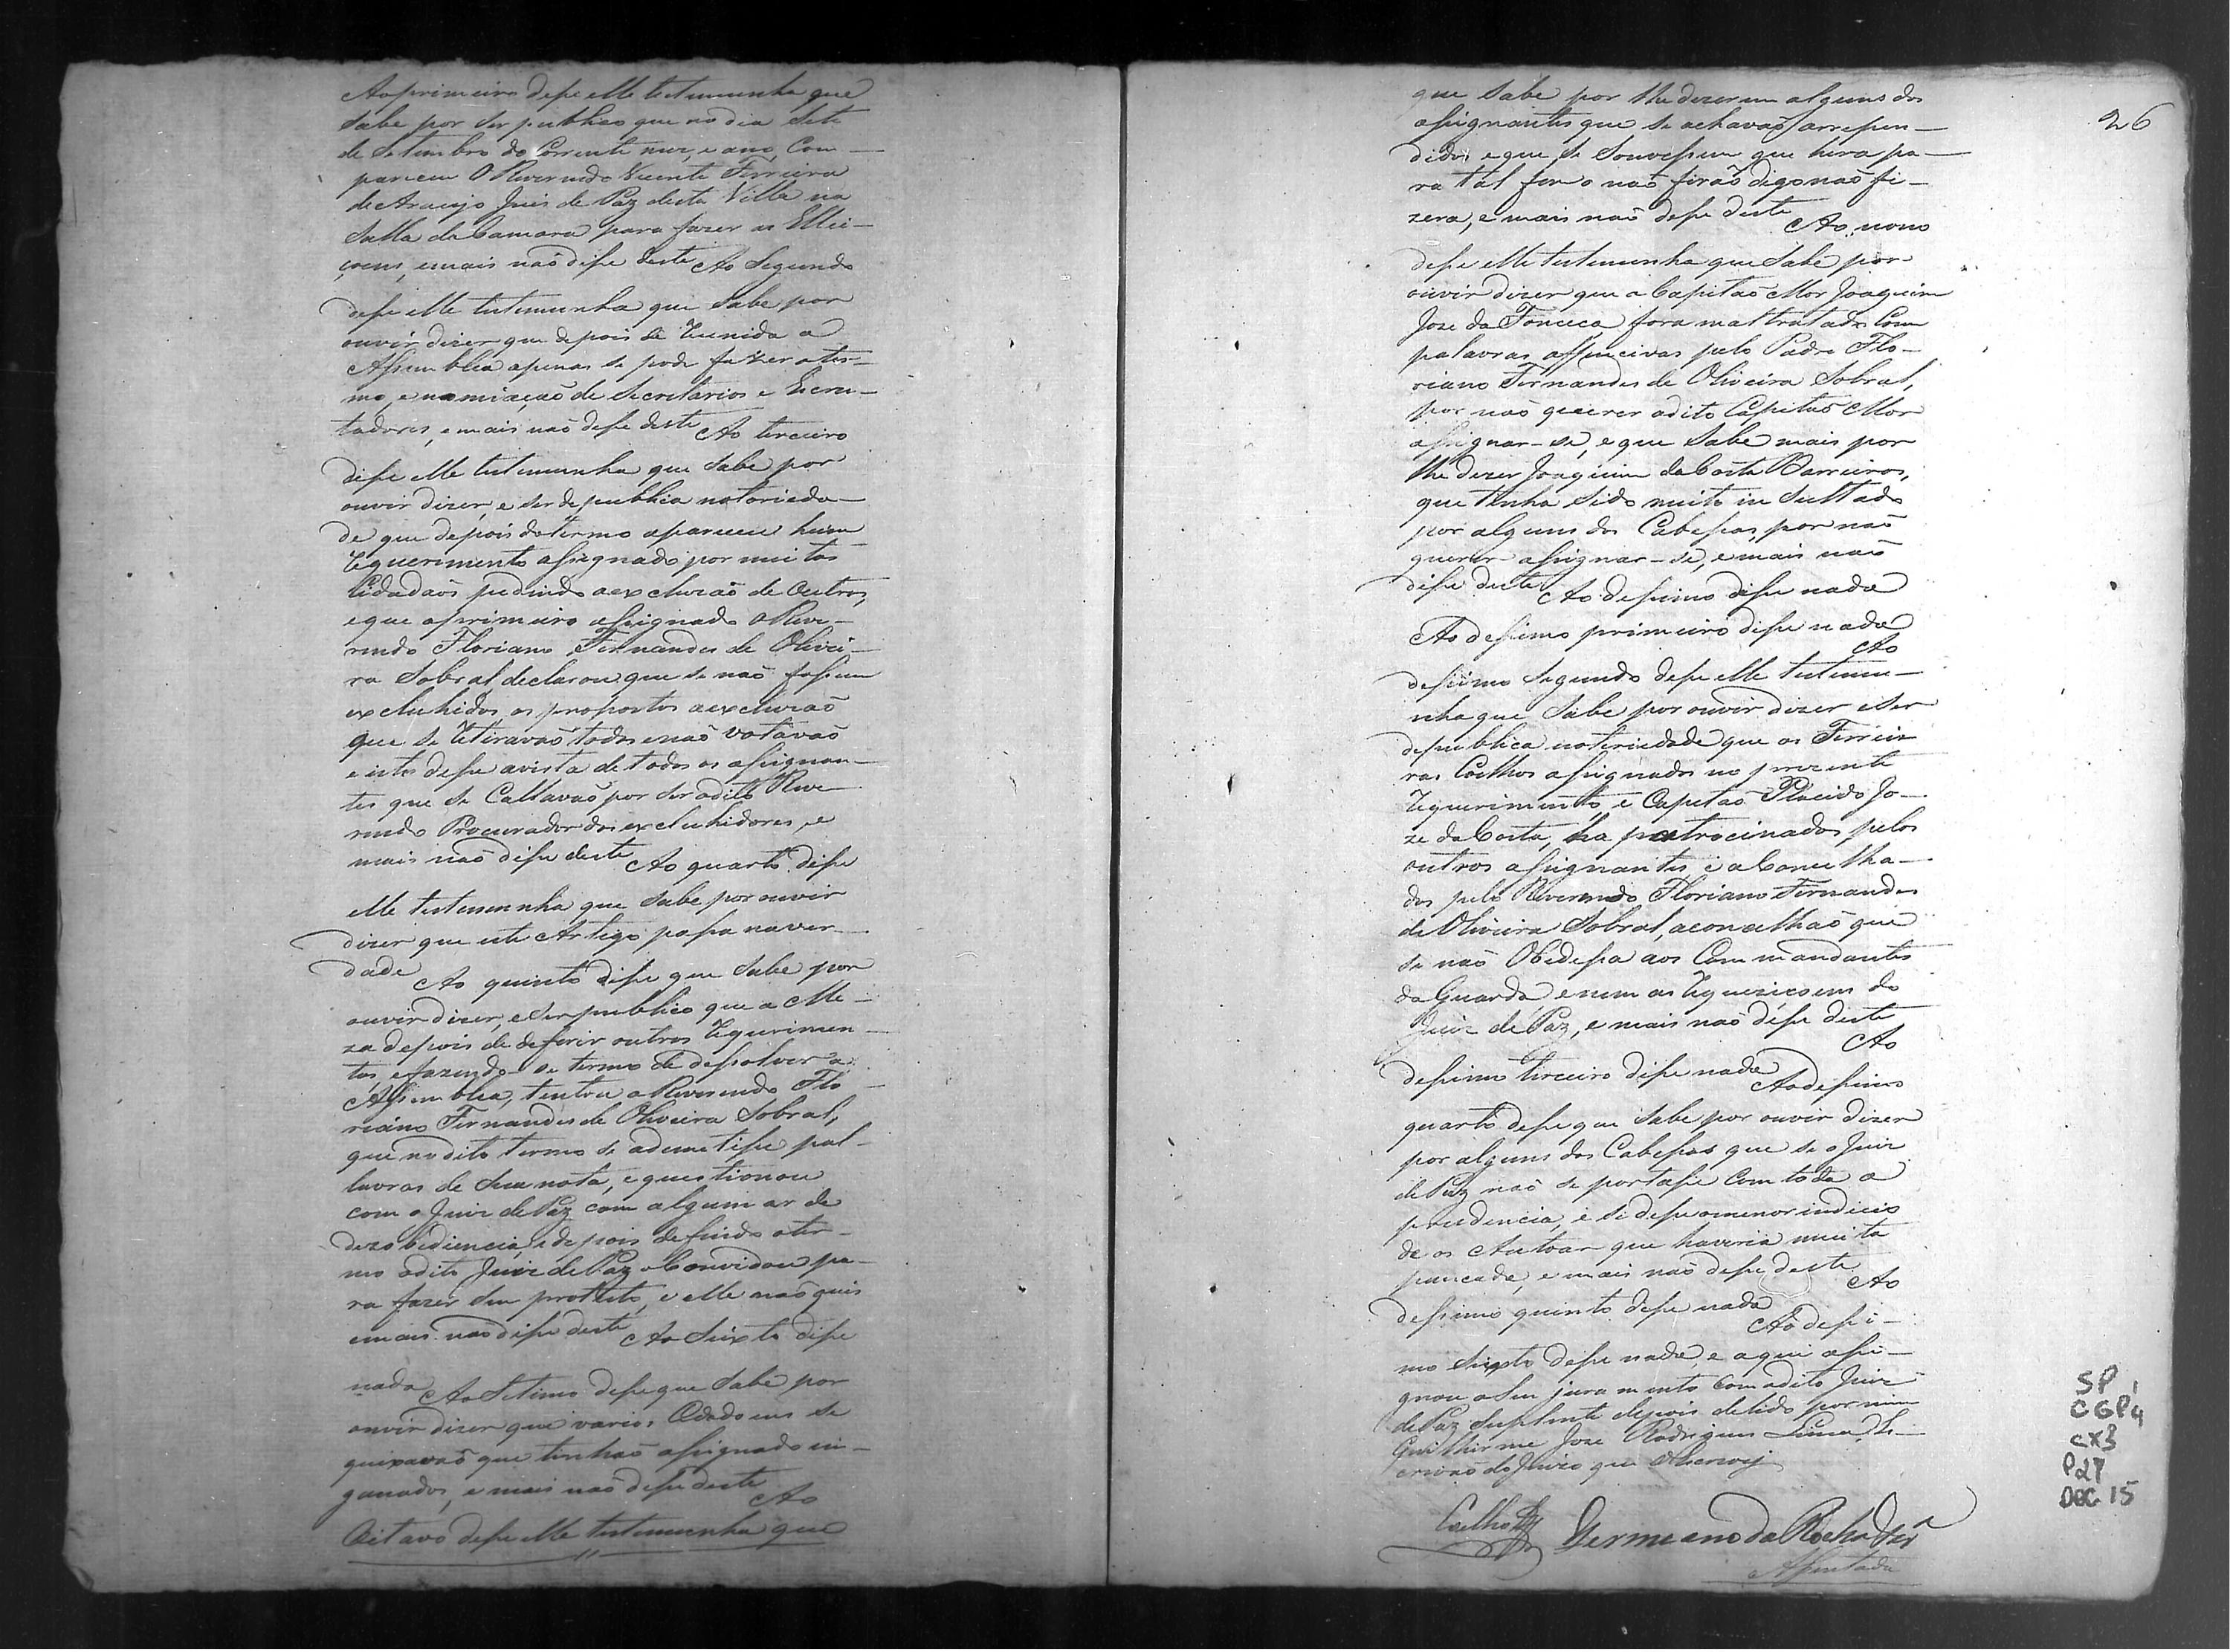 Ao primeiro disse elle testemunha que
sabe por ser publico que no dia sete
de Setembro do Corrente mez, e ano, Com-
pareceu O Reverendo Vicente Ferreira
de Araujo Juis de Paz desta Villa na
Salla da Camara para fazer as Ellei-
çoens, emais não disse deste Ao Segundo
disse elle testemunha que sabe por
ouvir dizer que depois de Reunida a
Assemblea apenas se pode fazer oter-
mo, e nomiação de Secretarios e Escru-
tadores, emais não disse deste Ao terceiro
disse elle testemunha que sabe por
ouvir dizer, e ser de publica notorieda-
de que depois dotermo apareceu hum
Requerimento assignado por muitos
Cidadaõs pedindo aexclusaõ de Outros,
eque oprimeiro assignado oReve-
rendo Floriano Fernandes de Olivei-
ra Sobral declarou que se naõ fossem
excluhidos os propostos aexclusaõ
que se Retiravaõ todos enaõ votavaõ
e isto disse avista de todos os assignan-
tes que se Callavaõ por ser odito Reve-
rendo Procurador dos excluhidores, e
mais naõ disse deste Ao quarto disse
elle testemunha que sabe por ouvir
dizer que este Artigo passa naver-
dade Ao quinto disse que sabe por
ouvir dizer, e ser publico que a Me-
za depois de deferir outros Requerimen-
tos, efazendo-se termo de dessolver a
Assemblea, tentou oReverendo Flo-
riano Fernandes de Oliveira Sobral,
que no dito termo se ademetisse pal-
lavras de sua nota, e questionou
com o Juiz de Paz com algum ar de
dezobidiencia, edepois defindo oter-
mo odito Juiz de Paz oConvidou pa-
ra fazer seu protesto, e elle naõ quis
emais naõ disse deste Ao Seixto disse
nada Ao Setimo disse que sabe por
ouvir dizer que varios Cidadoens se
queixavaõ que tinhaõ assignado en-
ganados, e mais naõ disse deste Ao
Oitavo disse elle testemunha que
26
que sabe por lhe dizerem alguns dos
assignantes que se achavaõ arrepen-
didos eque se Soubessem que hera pa-
ra tal fim o naõ firaõ digo naõ fi-
zera, e mais naõ disse deste Ao nono
disse elle testemunha que sabe por
ouvir dizer que o Capitaõ Mor Joaquim
Joze da Fonceca fora maltratado Com
palavras offencivas pelo Padre Flo-
riano Fernandes de Oliveira Sobral,
por naõ querer odito Capitaõ Mor
assignar-se, e que Sabe mais por
lhe dizer Joaquim da Costa Barreiros,
que tinha sido muito insultado
por alguns dos Cabessas, por naõ
querer assignar-se, emais naõ
disse deste Ao dessimo disse nada
Ao dessimo primeiro disse nada
Ao
dessimo segundo disse elle testemu-
nha que Sabe por ouvir dizer eser
depublica notoriedade que os Ferrei-
ras Coelhos assignados no prezente
Requerimento, e Capitaõ Placido Jo-
ze da Costa, ha patrocinados pelos
outros assignantes e aConselha-
dos pelo Reverendo Floriano Fernandes
de Oliveira Sobral, aconselhaõ que
se naõ Obedessa aos Commandantes
da Guarda, enem as Requezicoens do
Juiz de Paz, e mais naõ disse deste
Ao
dessimo terceiro disse nada Aodessimo
quarto disse que sabe por ouvir dizer
por alguns dos Cabessas que se o Juiz
de Paz naõ se portasse Com toda a
prudencia, e se desse omenor indicio
de os Autoar que haveria muita
pancada, e mais naõ disse deste Ao
dessimo quinto disse nada Ao dessi-
mo Seixto disse nada, e aqui assi-
gnou oseu juramento com odito Juiz
de Paz Suplente depois de lido por mim
Guilherme Joze Rodrigues Lima Es-
crivaõ do Juizo que oEscrevy
Coelho Germano da Rocha
Assentada
SP
CGP4
CX3
P27
DOC 15